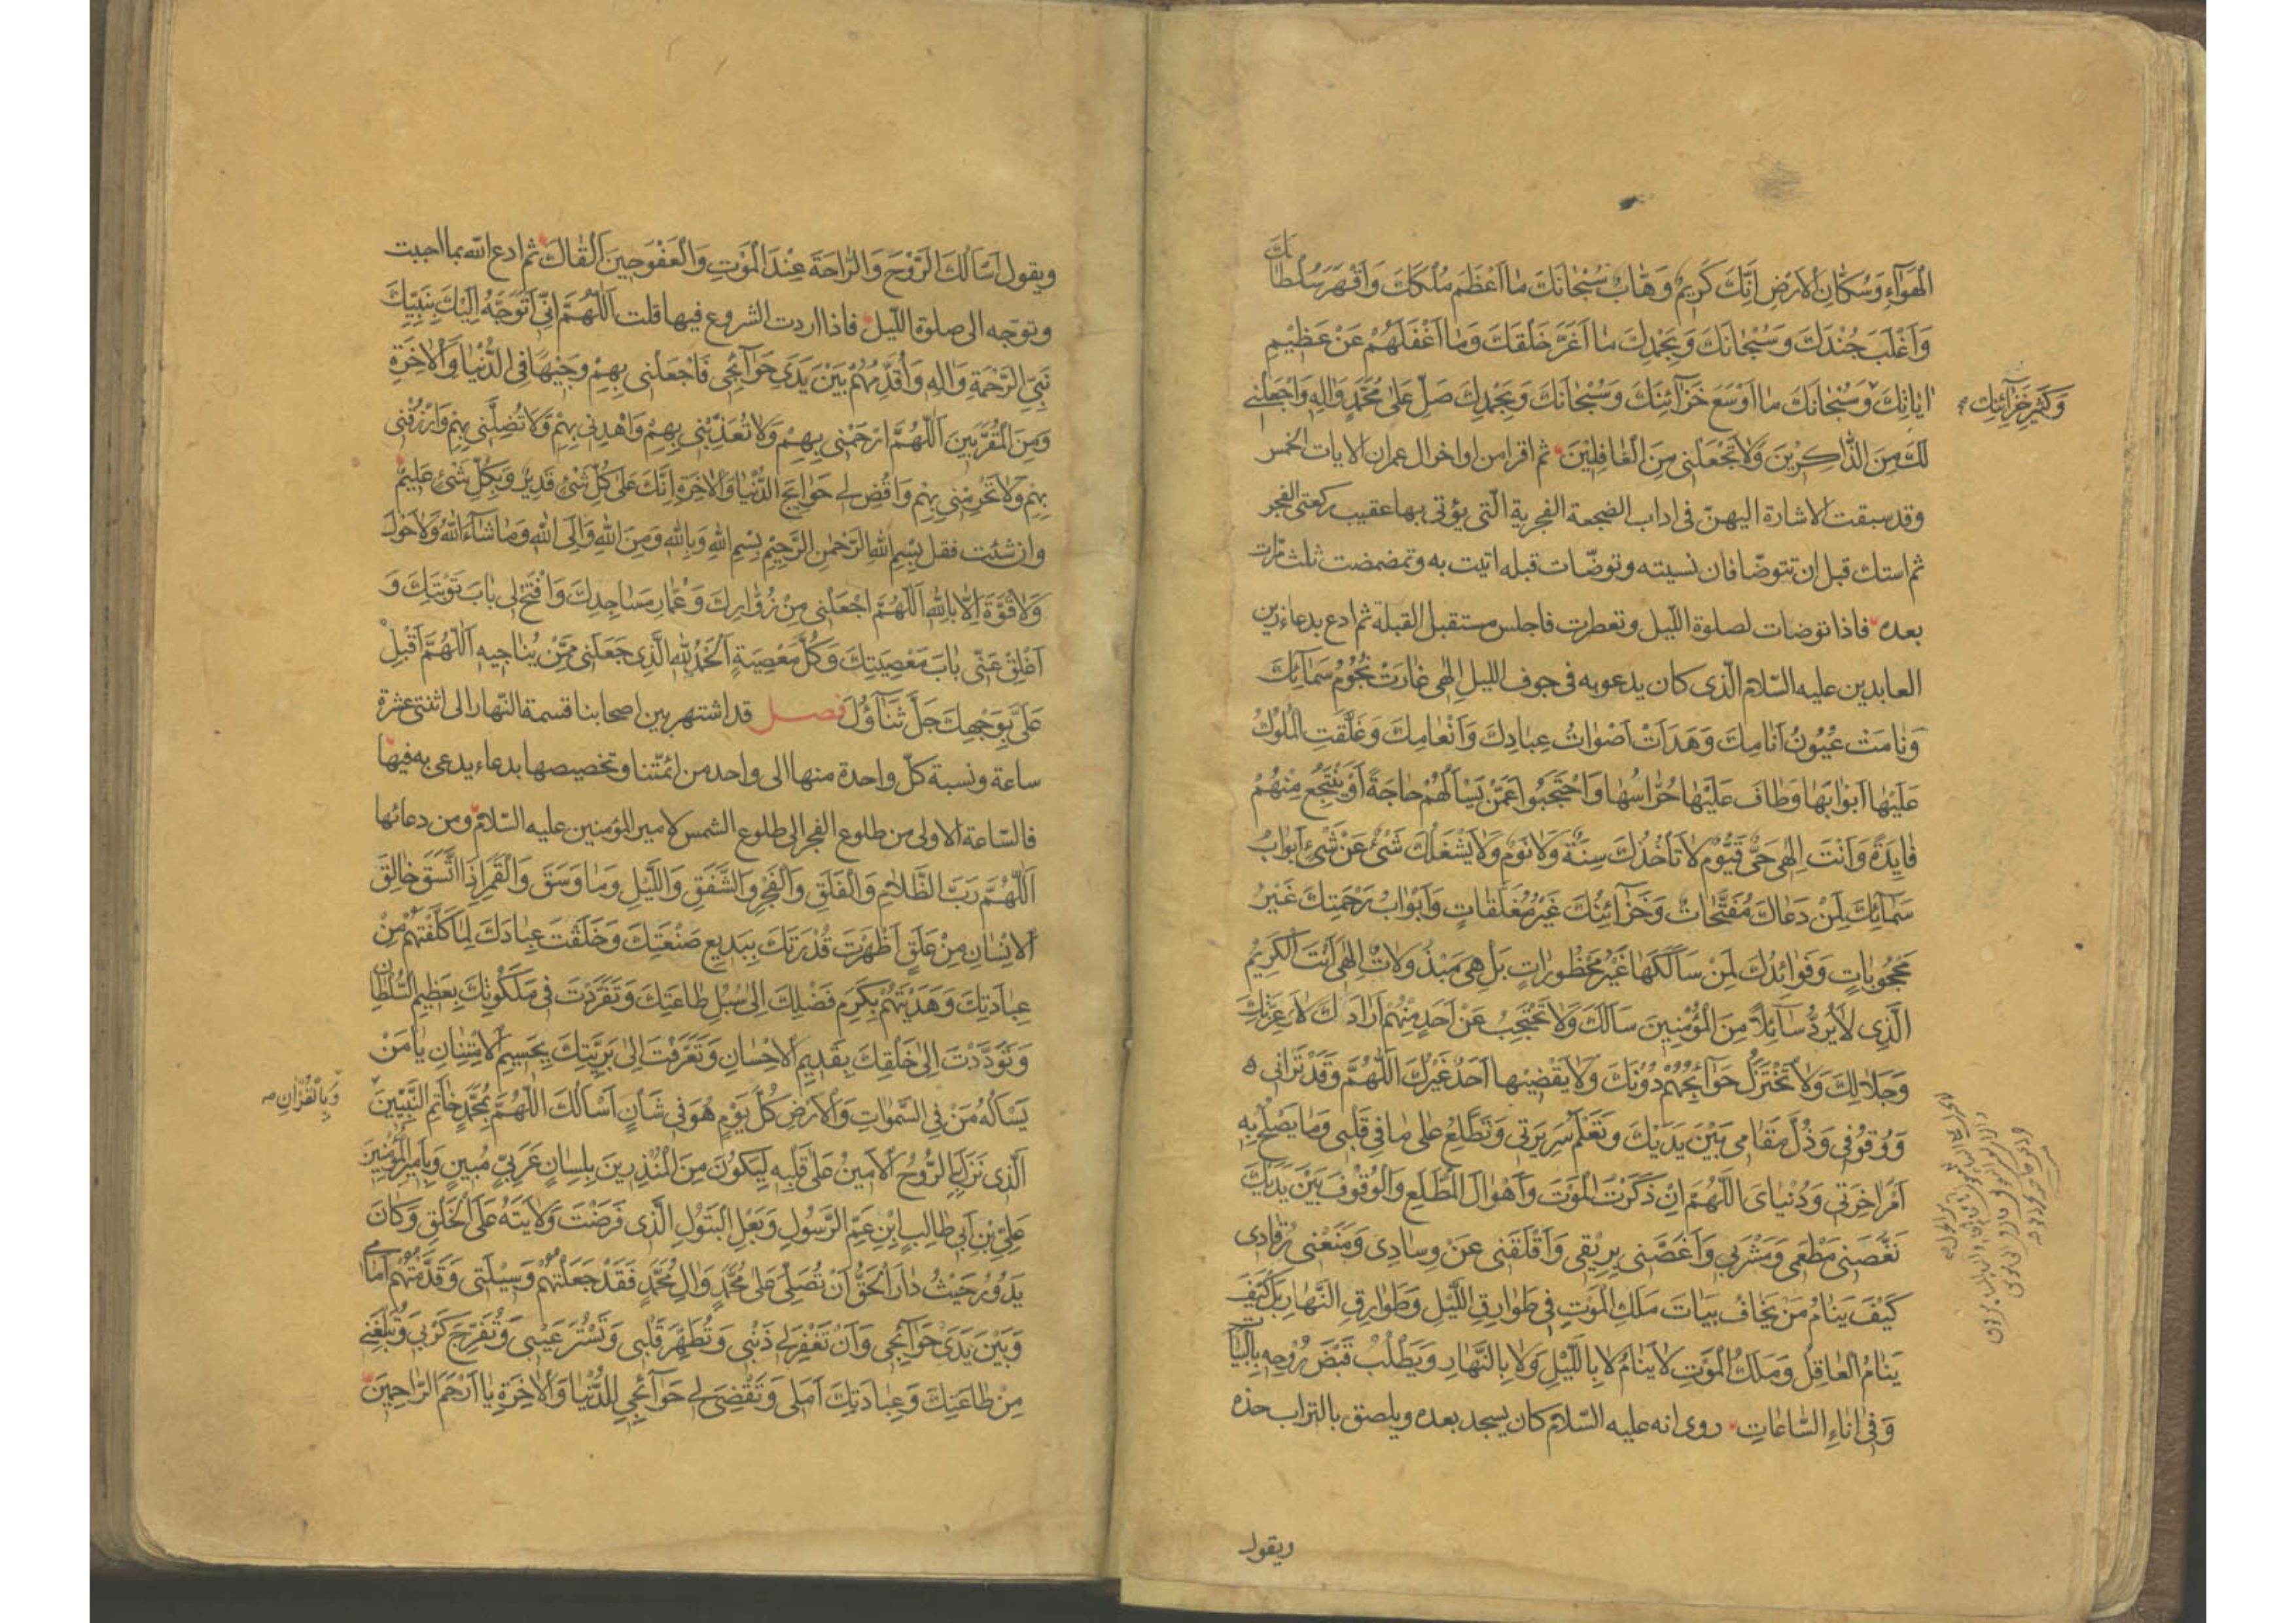 الْهَوَاءِ وَسُكَّانِ الْاَرْضِ اِنَّكَ كَرِيمٌ وَهَّابٌ سُبْحَانَكَ مَا اَعْظَمَ مُلْكَكَ وَاَقْهَرَ سُلْطَانَكَ
وَاَغْلَبَ جُنْدَكَ وَسُبْحَانَكَ وَبِحَمْدِكَ مَا اَغَرَّ خَلْقَكَ وَمَا اَغْفَلَهُمْ عَنْ عَظِيمِ
اٰيَاتِكَ وَسُبْحَانَكَ مَا اَوْسَعَ خَزَآئِنَكَ وَسُبْحَانَكَ وَبِحَمْدِكَ صَلِّ عَلٰى مُحَمَّدٍ وَاٰلِهِ وَاجْعَلْنِي
وَكَثِيرِ خَزَآئِنِكَ
لَكَ مِنَ الذَّاكِرِينَ وَلَا تَجْعَلْنِي مِنَ الْغَافِلِينَ ثم اقرا من اواخر ال عمران الايات الخمس
وقد سبقت الاشارة اليهنّ فى اداب الضجعة الفجرية الّتى يؤتى بها عقيب ركعتى الفجر
ثم استك قبل ان تتوضّا فان نسيته وتوضّات قبله اتيت به وتمضمضت ثلث مرّات
بعده فاذا توضات لصلوة اللّيل وتعطرت فاجلس مستقبل القبلة ثم ادع بدعاء زين
العابدين عليه السّلام الّذى كان يدعو به فى جوف الليل اِلٰهِى غَارَتْ نُجُومُ سَمَآئِكَ
وَنَامَتْ عُيُونُ اَنَامِكَ وَهَدَاَتْ اَصْوَاتُ عِبَادِكَ وَاَنْعَامِكَ وَغَلَّقَتِ الْمُلُوكُ
عَلَيْهَا اَبْوَابَهَا وَطَافَ عَلَيْهَا حُرَّاسُهَا وَاحْتَجَبُوا عَمَّنْ يَسْاَلُهُمْ حَاجَةً اَوْ يَنْتَجِعُ مِنْهُمْ
فَايِدَةً وَاَنْتَ اِلٰهِى حَيٌّ قَيُّومٌ لَا تَاْخُذُكَ سِنَةٌ وَلَا نَوْمٌ وَلَا يَشْغَلُكَ شَيْءٌ عَنْ شَيْءٍ اَبْوَابُ
سَمَآئِكَ لِمَنْ دَعَاكَ مُفَتَّحَاتٌ وَخَزَآئِنُكَ غَيْرُ مُغَلَّقَاتٍ وَاَبْوَابُ رَحْمَتِكَ غَيْرُ
مَحْجُوبَاتٍ وَفَوَائِدُكَ لِمَنْ سَاَلَكَهَا غَيْرُ مَحْظُورَاتٍ بَلْ هِيَ مَبْذُولَاتٌ اِلٰهِى اَنْتَ الْكَرِيمُ
الَّذِى لَا يَرُدُّ سَآئِلًا مِنَ الْمُؤْمِنِينَ سَاَلَكَ وَلَا تَحْتَجِبُ عَنْ اَحَدٍ مِنْهُمْ اَرَادَكَ لَا وَعِزَّتِكَ
وَجَلَالِكَ وَلَا تَخْتَزِلُ حَوَآئِجُهُمْ دُونَكَ وَلَا يَقْضِيهَا اَحَدٌ غَيْرُكَ اَللّٰهُمَّ وَقَدْ تَرَانِى
وَوُقُوفِى وَذُلَّ مَقَامِى بَيْنَ يَدَيْكَ وَتَعْلَمُ سَرِيرَتِى وَتَطَّلِعُ عَلٰى مَا فِى قَلْبِى وَمَا يَصْلُحُ بِهِ
اَمْرُ اٰخِرَتِى وَدُنْيَاىَ اَللّٰهُمَّ اِنْ ذَكَرْتُ الْمَوْتَ وَاَهْوَالَ الْمُطَّلَعِ وَالْوُقُوفَ بَيْنَ يَدَيْكَ
نَغَّصَنِى مَطْعَمِى وَمَشْرَبِى وَاَغَصَّنِى بِرِيقِى وَاَقْلَقَنِى عَنْ وِسَادِى وَمَنَعَنِى رُقَادِى
كَيْفَ يَنَامُ مَنْ يَخَافُ بَيَاتَ مَلَكِ الْمَوْتِ فِى طَوَارِقِ اللَّيْلِ وَطَوَارِقِ النَّهَارِ بَلْ كَيْفَ
يَنَامُ الْعَاقِلُ وَمَلَكُ الْمَوْتِ لَا يَنَامُ لَا بِاللَّيْلِ وَلَا بِالنَّهَارِ وَيَطْلُبُ قَبْضَ رُوحِهِ بِالْبَيَاتِ
وَفِى اٰنَاءِ السَّاعَاتِ روى انه عليه السّلام كان يسجد بعده ويلصق بالتراب خده
ويقول
ويقول اَسْاَلُكَ الرَّوْحَ وَالرَّاحَةَ عِنْدَ الْمَوْتِ وَالْعَفْوَ حِينَ اَلْقَاكَ ثم ادع اللّه بما احببت
وتوجّه الى صلوة اللّيل فاذا اردت الشروع فيها قلت اَللّٰهُمَّ اِنِّى اَتَوَجَّهُ اِلَيْكَ بِنَبِيِّكَ
نَبِيِّ الرَّحْمَةِ وَاٰلِهِ وَاُقَدِّمُهُمْ بَيْنَ يَدَىْ حَوَآئِجِى فَاجْعَلْنِى بِهِمْ وَجِيهًا فِى الدُّنْيَا وَالْاٰخِرَةِ
وَمِنَ الْمُقَرَّبِينَ اَللّٰهُمَّ ارْحَمْنِى بِهِمْ وَلَا تُعَذِّبْنِى بِهِمْ وَاهْدِنِى بِهِمْ وَلَا تُضِلَّنِى بِهِمْ وَارْزُقْنِى
بِهِمْ وَلَا تَحْرِمْنِى بِهِمْ وَاقْضِ لِى حَوَائِجَ الدُّنْيَا وَالْاٰخِرَةِ اِنَّكَ عَلٰى كُلِّ شَيْءٍ قَدِيرٌ وَبِكُلِّ شَيْءٍ عَلِيمٌ
وان شئت فقل بِسْمِ اللّٰهِ الرَّحْمٰنِ الرَّحِيمِ بِسْمِ اللّٰهِ وَبِاللّٰهِ وَمِنَ اللّٰهِ وَاِلَى اللّٰهِ وَمَا شَآءَ اللّٰهُ وَلَا حَوْلَ
وَلَا قُوَّةَ اِلَّا بِاللّٰهِ اَللّٰهُمَّ اجْعَلْنِى مِنْ زُوَّارِكَ وَعُمَّارِ مَسَاجِدِكَ وَافْتَحْ لِى بَابَ تَوْبَتِكَ وَ
اَغْلِقْ عَنِّى بَابَ مَعْصِيَتِكَ وَكُلَّ مَعْصِيَةٍ اَلْحَمْدُ لِلّٰهِ الَّذِى جَعَلَنِى مِمَّنْ يُنَاجِيهِ اَللّٰهُمَّ اَقْبِلْ
عَلَيَّ بِوَجْهِكَ جَلَّ ثَنَآؤُكَ فصل قد اشتهر بين اصحابنا قسمة النّهار الى اثنتى عشرة
ساعة ونسبة كلّ واحدة منها الى واحد من ائمّتنا وتخصيصها بدعاء يدعى به فيها
فالسّاعة الاولى من طلوع الفجر الى طلوع الشمس لامير المؤمنين عليه السّلام ومن دعائها
اَللّٰهُمَّ رَبَّ الظَّلَامِ وَالْفَلَقِ وَالْفَجْرِ وَالشَّفَقِ وَاللَّيْلِ وَمَا وَسَقَ وَالْقَمَرِ اِذَا اتَّسَقَ خَالِقَ
الْاِنْسَانِ مِنْ عَلَقٍ اَظْهَرْتَ قُدْرَتَكَ بِبَدِيعِ صَنْعَتِكَ وَخَلَقْتَ عِبَادَكَ لِمَا كَلَّفْتَهُمْ مِنْ
عِبَادَتِكَ وَهَدَيْتَهُمْ بِكَرَمِ فَضْلِكَ اِلٰى سُبُلِ طَاعَتِكَ وَتَفَرَّدْتَ فِى مَلَكُوتِكَ بِعَظِيمِ السُّلْطَانِ
وَتَوَدَّدْتَ اِلٰى خَلْقِكَ بِقَدِيمِ الْاِحْسَانِ وَتَعَرَّفْتَ اِلٰى بَرِيَّتِكَ بِجَسِيمِ الْاِمْتِنَانِ يَا مَنْ
يَسْاَلُهُ مَنْ فِى السَّمٰوَاتِ وَالْاَرْضِ كُلَّ يَوْمٍ هُوَ فِى شَاْنٍ اَسْاَلُكَ اَللّٰهُمَّ بِمُحَمَّدٍ خَاتَمِ النَّبِيِّينَ
وَبِالْقُرْاٰنِ
الَّذِى نَزَلَ بِهِ الرُّوحُ الْاَمِينُ عَلٰى قَلْبِهِ لِيَكُونَ مِنَ الْمُنْذِرِينَ بِلِسَانٍ عَرَبِيٍّ مُبِينٍ وَبِاَمِيرِ الْمُؤْمِنِينَ
عَلِيِّ بْنِ اَبِى طَالِبٍ ابْنِ عَمِّ الرَّسُولِ وَبَعْلِ الْبَتُولِ الَّذِى فَرَضْتَ وَلَايَتَهُ عَلَى الْخَلْقِ وَكَانَ
يَدُورُ حَيْثُ دَارَ الْحَقُّ اَنْ تُصَلِّيَ عَلٰى مُحَمَّدٍ وَاٰلِ مُحَمَّدٍ فَقَدْ جَعَلْتُهُمْ وَسِيلَتِى وَقَدَّمْتُهُمْ اَمَامِى
وَبَيْنَ يَدَىْ حَوَآئِجِى وَاَنْ تَغْفِرَ لِى ذَنْبِى وَتُطَهِّرَ قَلْبِى وَتَسْتُرَ عَيْبِى وَتُفَرِّجَ كَرْبِى وَتُبَلِّغَنِى
مِنْ طَاعَتِكَ وَعِبَادَتِكَ اَمَلِى وَتَقْضِىَ لِى حَوَآئِجِى لِلدُّنْيَا وَالْاٰخِرَةِ يَا اَرْحَمَ الرَّاحِمِينَ